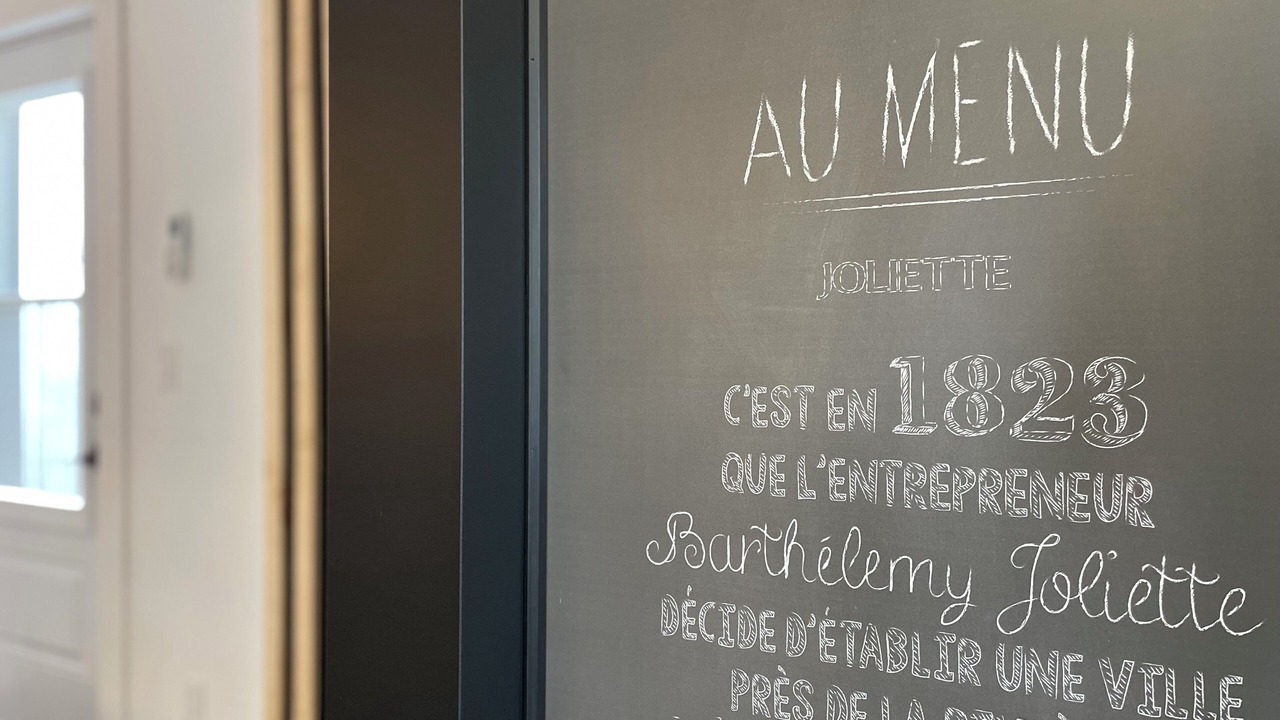 AU MENU
JOLIETTE
C'EST EN 1823
QUE L'ENTREPRENEUR
Barthélemy Joliette
DÉCIDE D'ÉTABLIR UNE VILLE
PRÈS DE LA